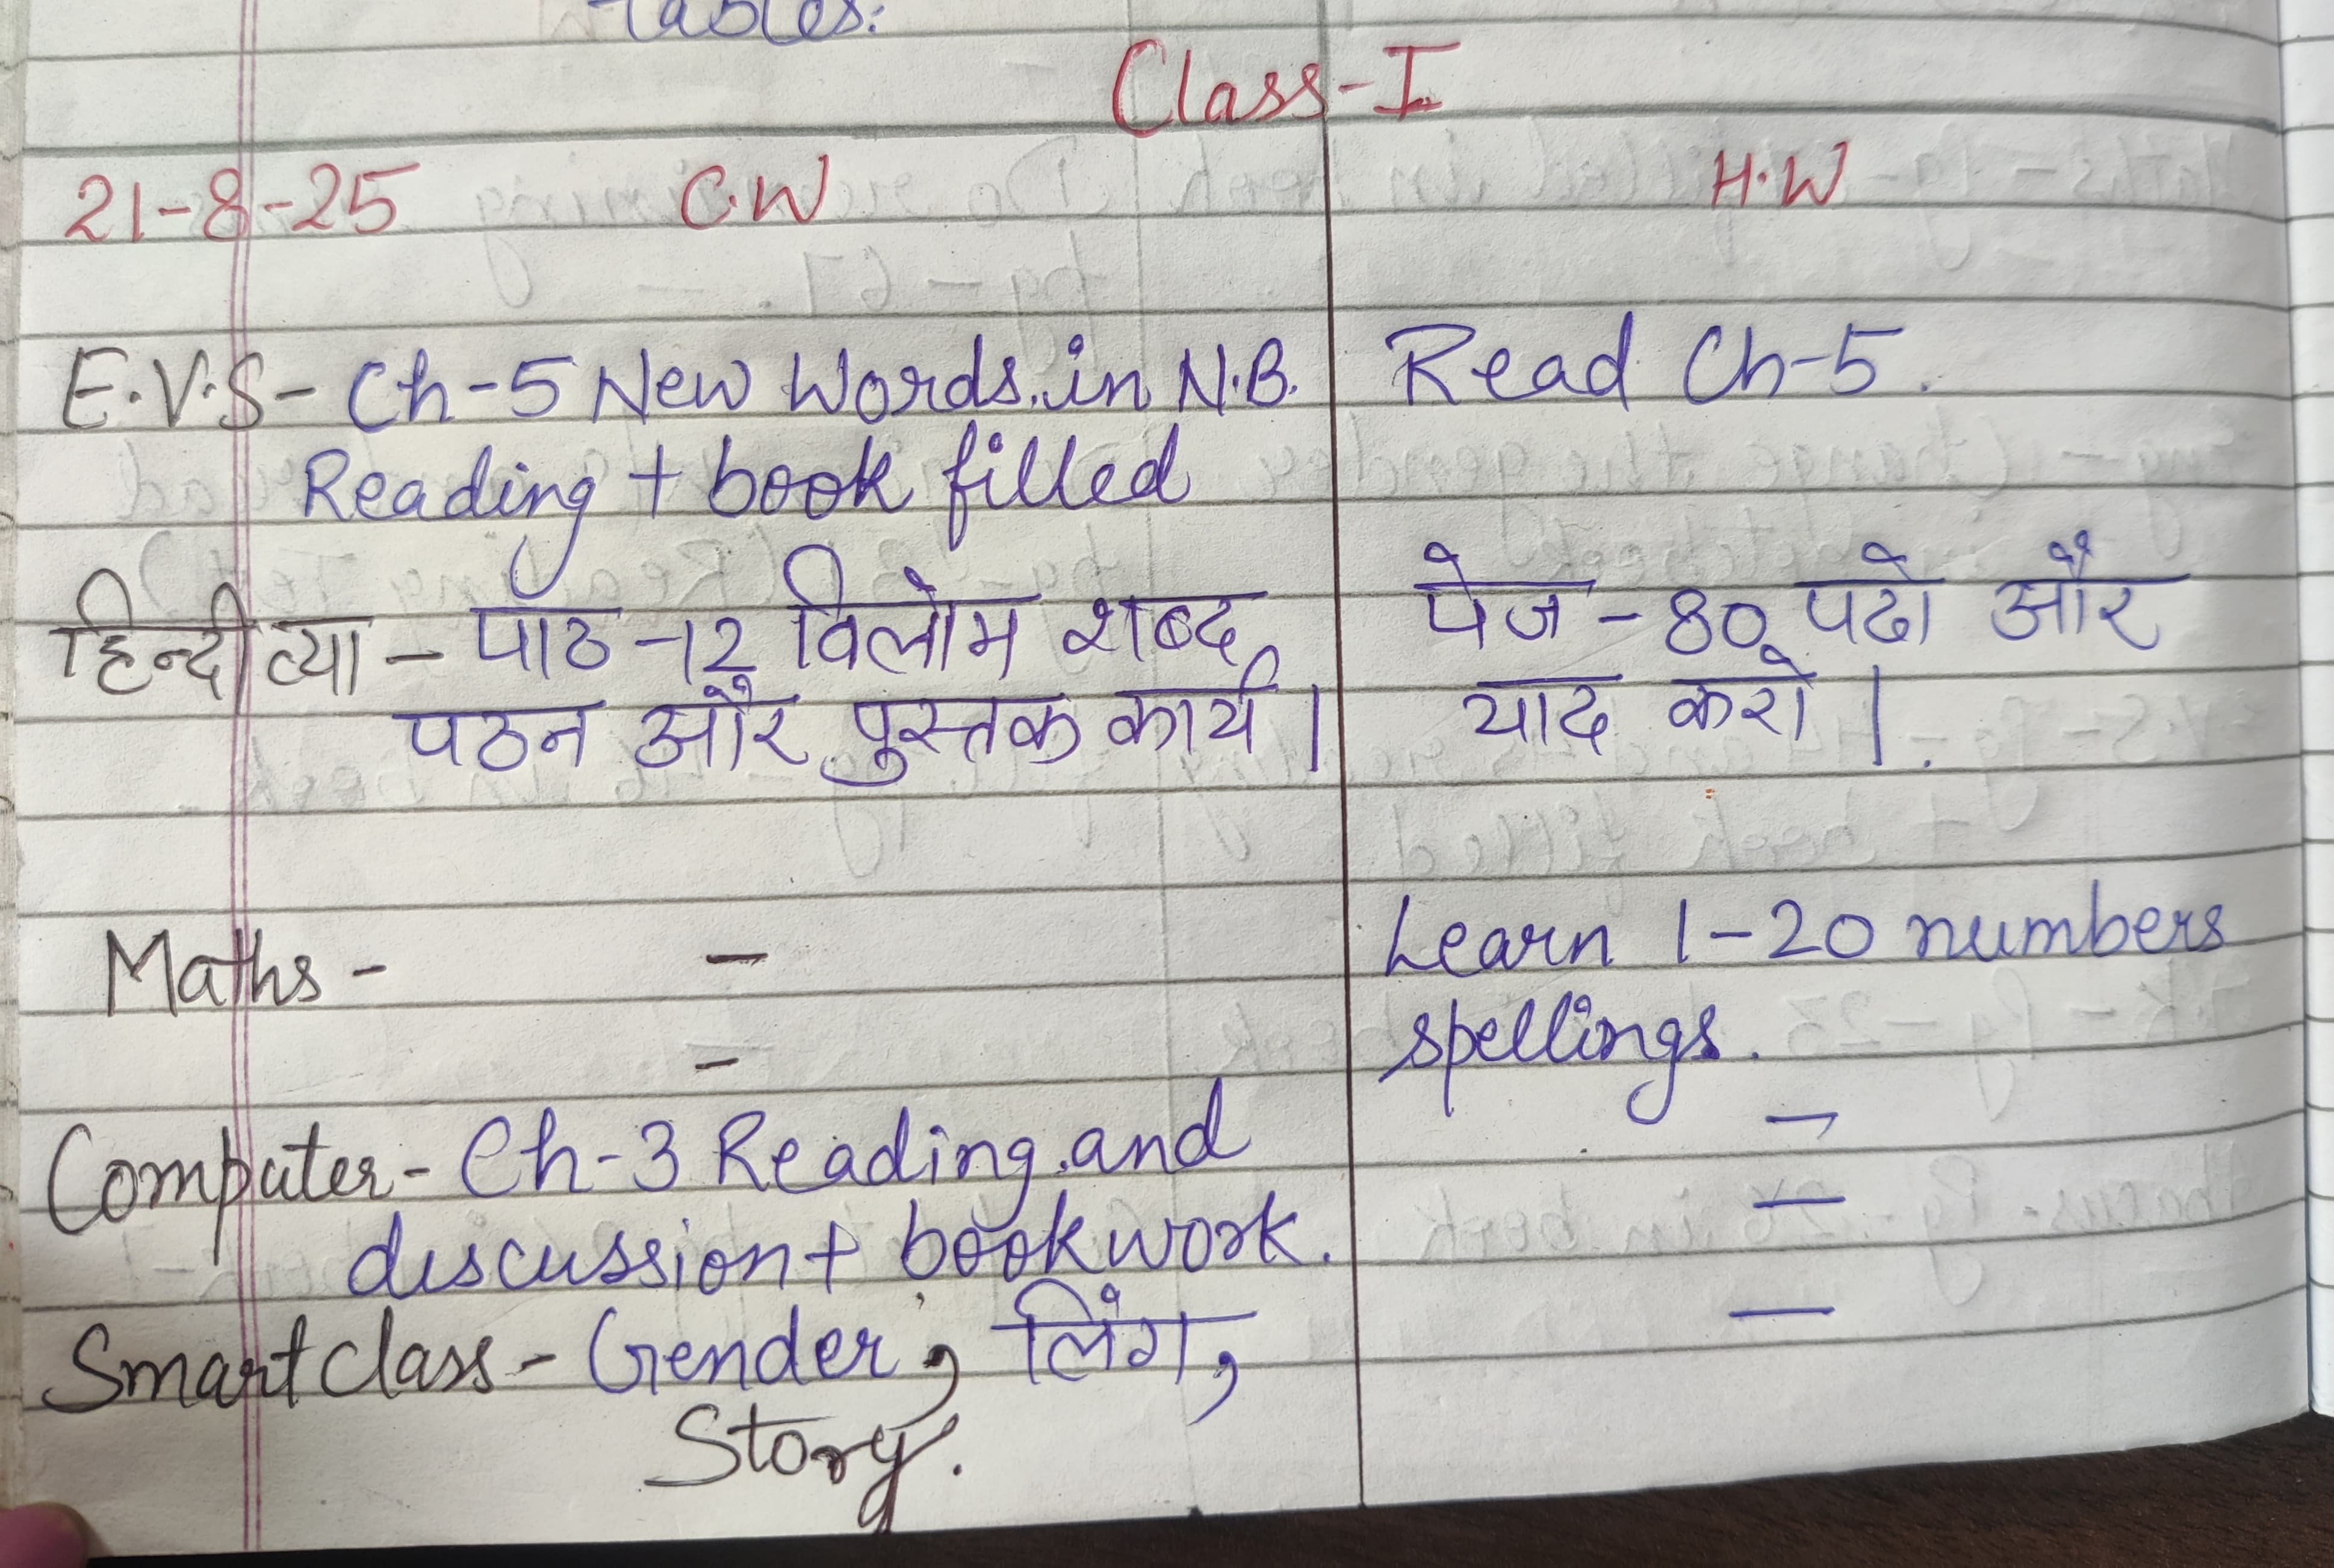 tables.
Class-I
21-8-25 C.W H.W
E.V.S- Ch-5 New Words in N.B. Read Ch-5.
Reading + book filled
हिन्दी व्या - पाठ -12 विलोम शब्द, पेज - 80 पढो और
पठन और पुस्तक कार्य। याद करो।
Maths- - Learn 1-20 numbers
- spellings.
Computer- Ch-3 Reading and -
discussion + bookwork. -
Smart class- Gender, लिंग, -
Story.